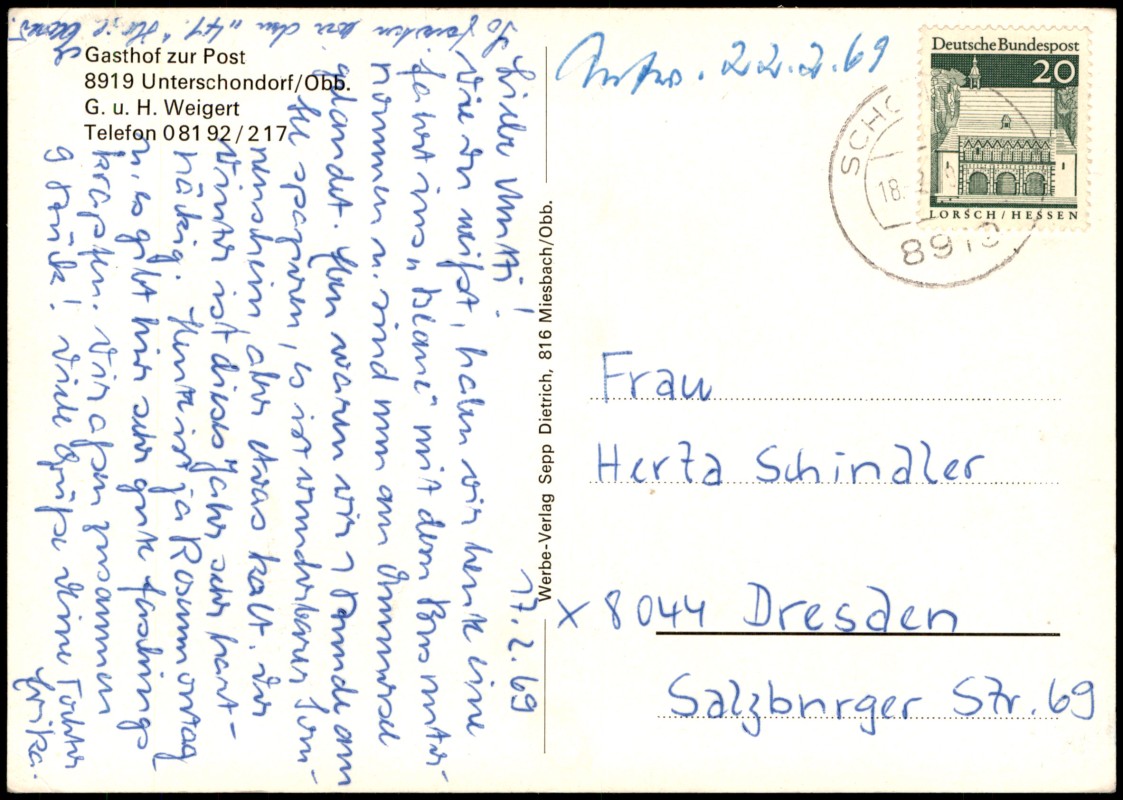 Gasthof zur Post
8919 Unterschondorf/Obb.
G. u. H. Weigert
Telefon 08192/217
17.2.69
Liebe Mutti!
Wie Du weißt, haben wir heute eine
Fahrt ins "Blaue" mit dem Bus unter-
nommen u. sind nun am Ammersee
gelandet. Hier waren wir 1 Stunde am
See spazieren, es ist wunderbarer Son-
nenschein aber etwas kalt. Der
Winter ist dieses Jahr sehr hart-
näckig. Heute ist ja Rosenmontag
u. es gibt hier sehr gute Faschings
krapfen. Wir aßen zusammen
9 Stück! Viele Grüße Deine Tochter
Erika.
Werbe-Verlag Sepp Dietrich, 816 Miesbach/Obb.
22.2.69
Deutsche Bundespost
20
LORSCH/HESSEN
SCHO
18.
Frau
Herta Schindler
X 8044 Dresden
Salzburger Str. 69